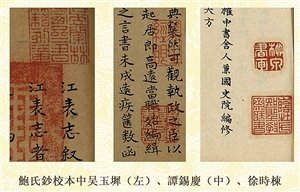 權中書舍人兼國史院編修
大方
典粲然可觀執政之臣以
起居郎高遠當職始編輯
之言書未成遠疾篤數函
江表志
江表志者
鮑氏鈔校本中吳玉墀（左）、譚錫慶（中）、徐時棟